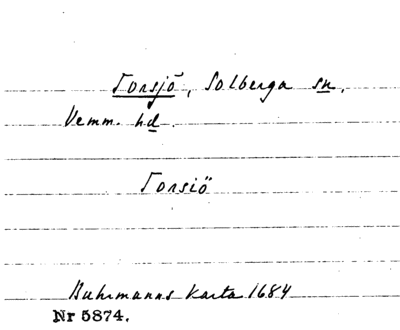 Torsjö, Solberga sn.
Vemm. hd.
Torsiö
Buhrmanns Karta 1684
Nr 5874.